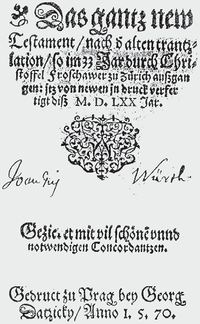 Das gantz new
Testament / nach d̕ alten trantz-
lation / so im 33 Jar durch Chri-
stoffel Froschawer zu Zürich außgan
gen: jtz von newen in druck verfer
tigt diß M. D. LXX Jar.
Joannis Würth.
Gezie. et mit vil schönẽ vnnd
notwendigen Concordantzen.
Gedruct zu Prag bey Georg
Datzicky / Anno 1. 5. 70.